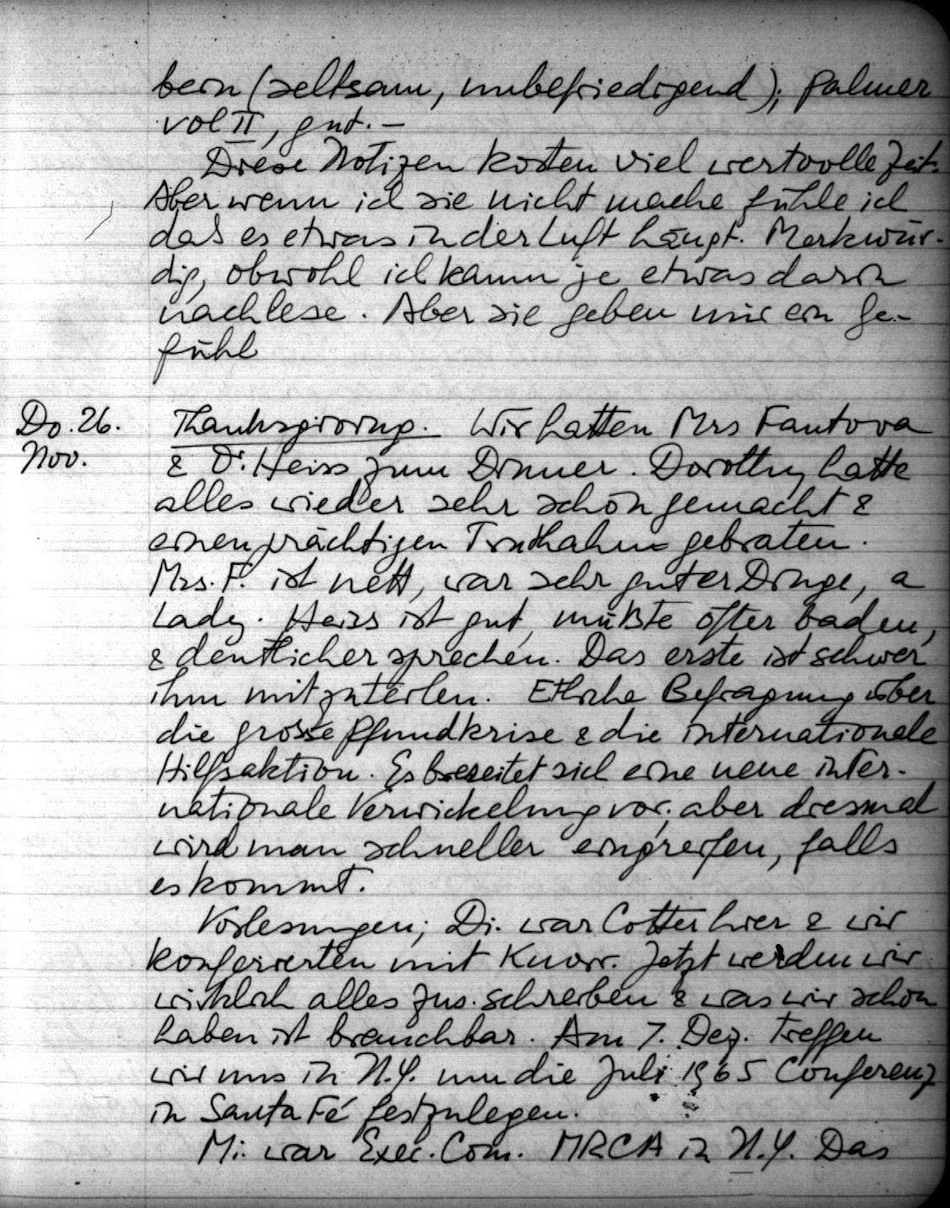 bern (seltsam, unbefriedigend); Palmer
vol II, gut. –
Diese Notizen kosten viel wertvolle Zeit.
Aber wenn ich sie nicht mache fühle ich
daß es etwas in der Luft hängt. Merkwür-
dig, obwohl ich kaum je etwas darin
nachlese. Aber sie geben mir ein Ge-
fühl
Do. 26. Thanksgiving. Wir hatten Mrs Fantova
Nov. & Dr. Heiss zum Dinner. Dorothy hatte
alles wieder sehr schön gemacht &
einen prächtigen Truthahn gebraten.
Mrs. F. ist nett, war sehr guter Dinge, a
Lady. Heiss ist gut, müßte öfter baden,
& deutlicher sprechen. Das erste ist schwer
ihm mitzuteilen. Etliche Befragung über
die grosse Pfundkrise & die internationale
Hilfsaktion. Es bereitet sich eine neue inter-
nationale Verwickelung vor; aber diesmal
wird man schneller eingreifen, falls
es kommt.
Vorlesungen; Di. war Cotter hier & wir
konferierten mit Knorr. Jetzt werden wir
wirklich alles zus. schreiben & was wir schon
haben ist brauchbar. Am 7. Dez. treffen
wir uns in N.Y. um die Juli 1965 Conferenz
in Santa Fé festzulegen.
Mi. war Exec. Com. MRCA in N.Y. Das